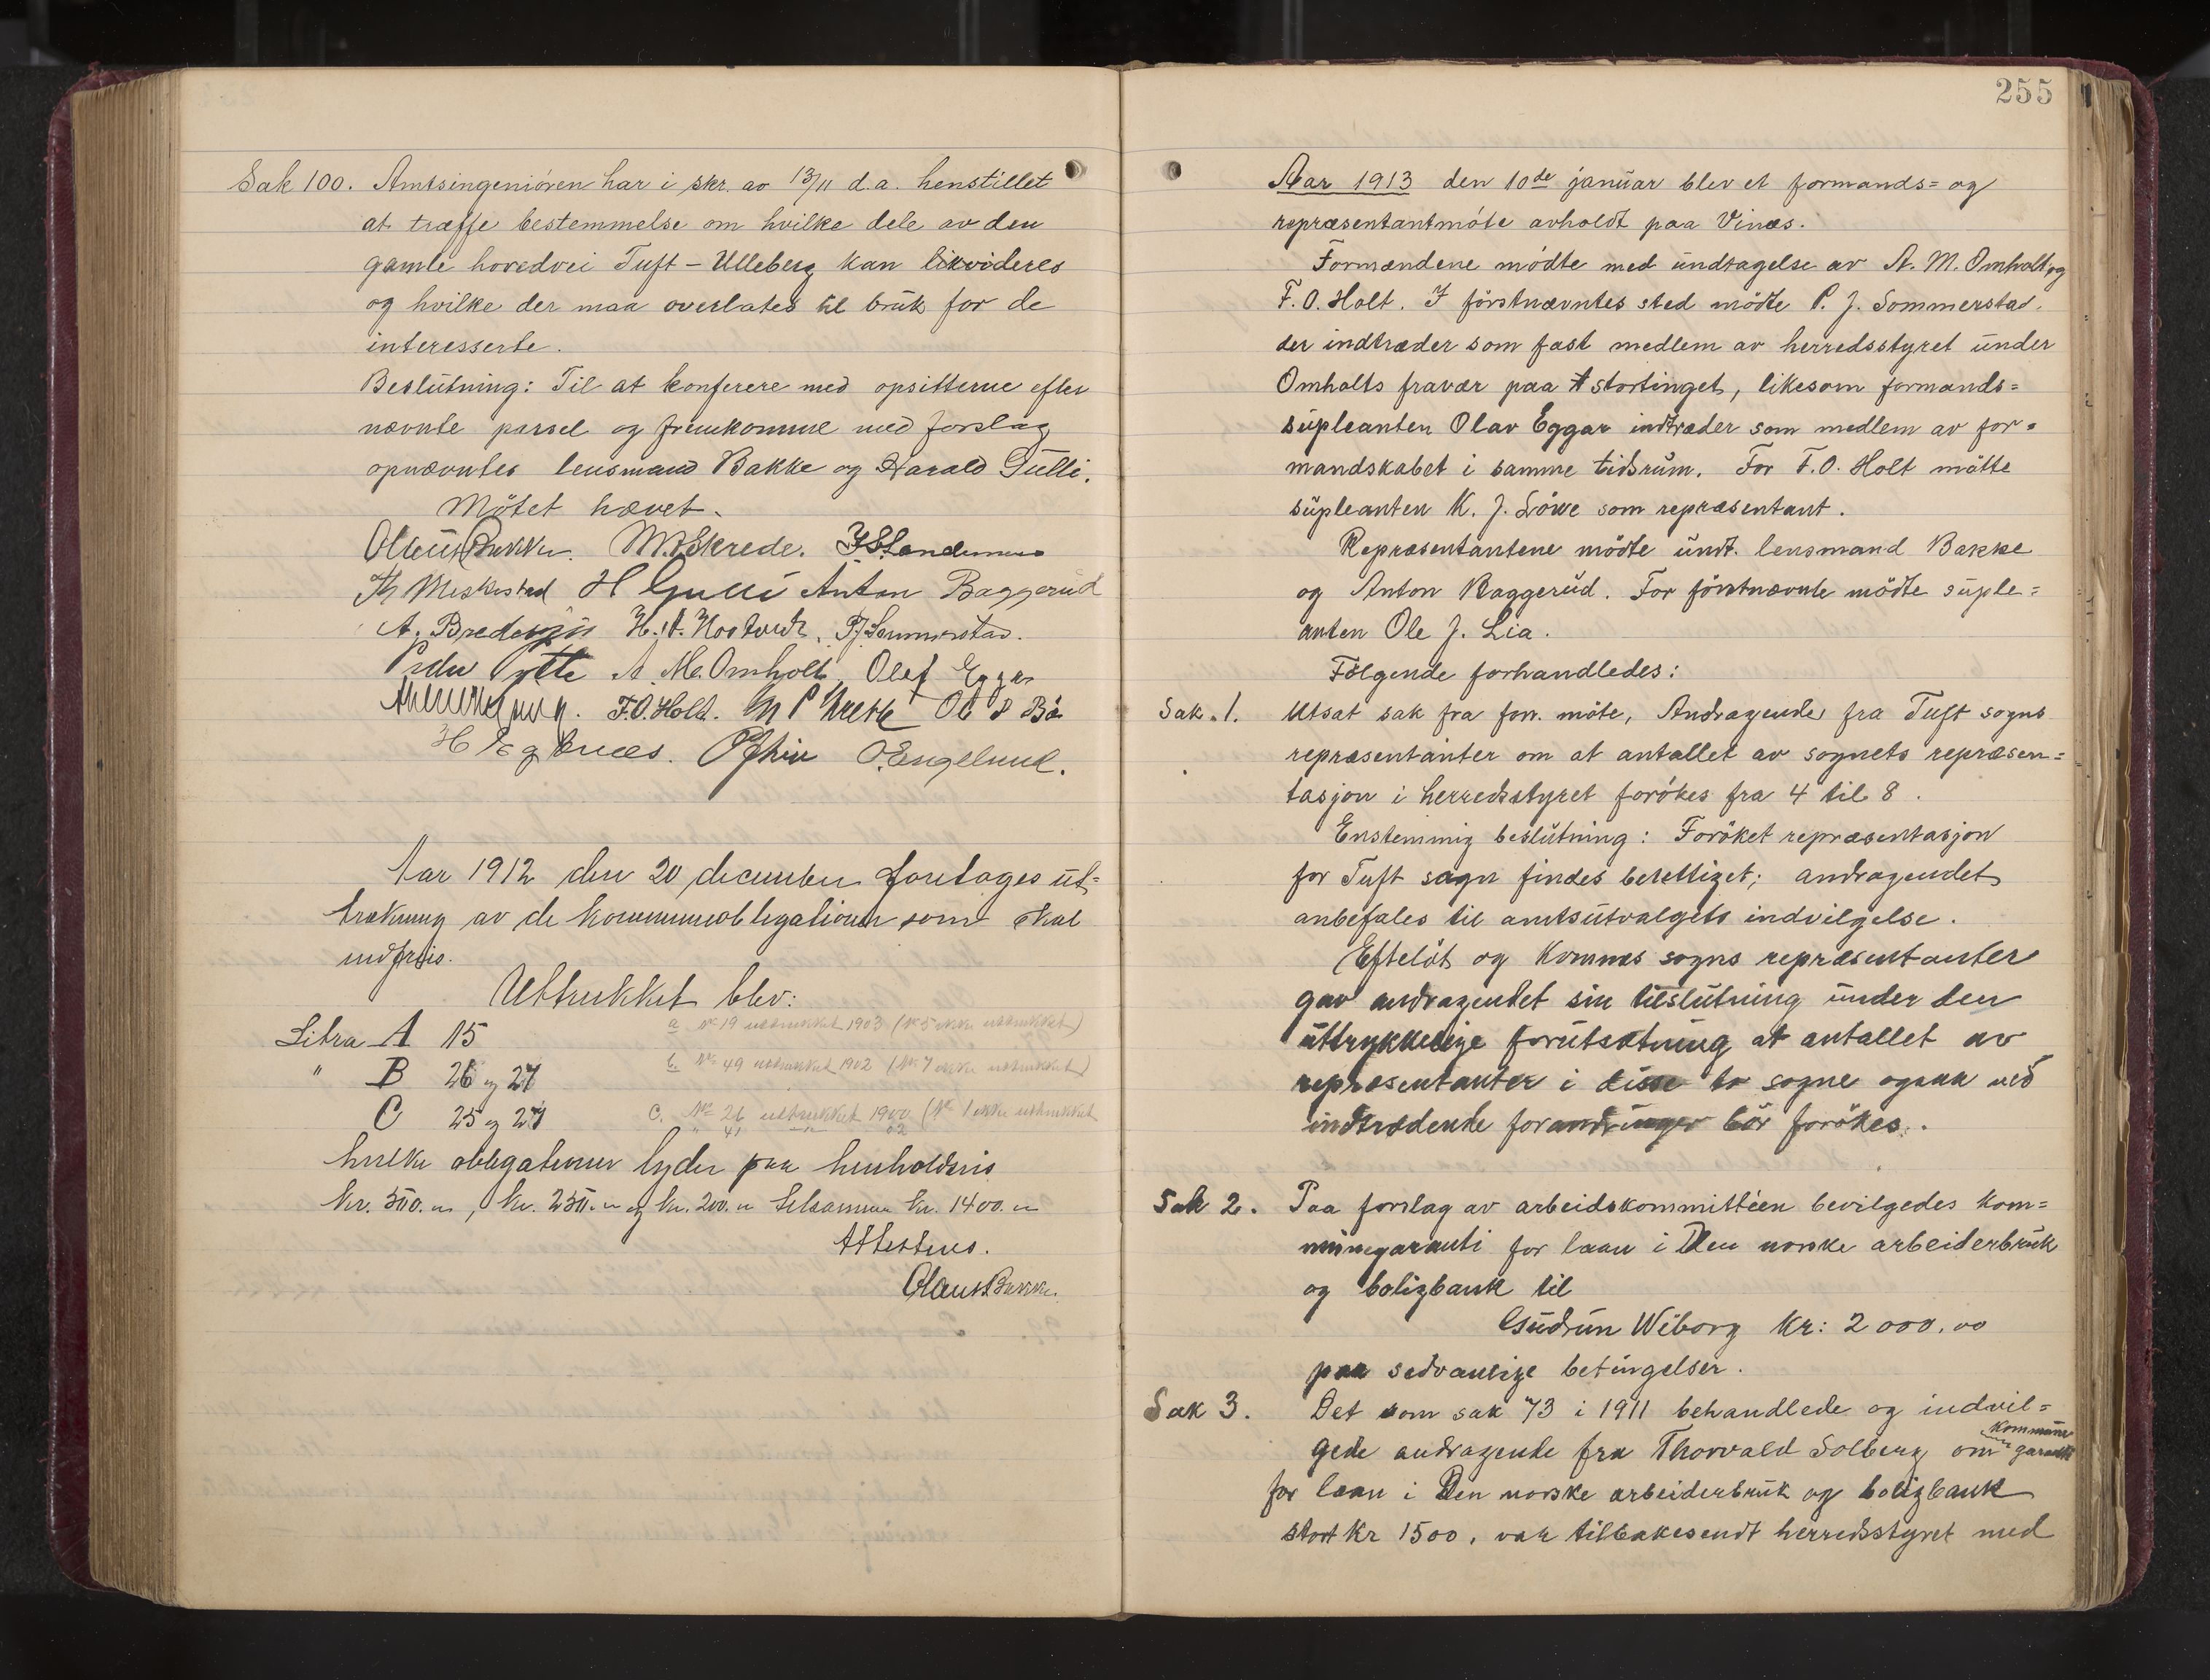 Sak 100. Amtsingeniøren har i skr. av 13/11 d.a. henstillet
at træffe bestemmelse om hvilke dele av den
gamle hovedvei Tuft - Ulleberg kan likvideres
og hvilke der maa overlates til bruk for de
interesserte.
Beslutning: Til at konferere med opsitterne efter
nævnte parsel og fremkomme med forslag
opnævntes lensmand Bakke og Harald Gulli.
Møtet hævet.
Olaus Bakke. M. Skrede.
H Gulli Anton Baggerud
P J Sommerstad.
A. M. Omholt Olaf Eggar
F.O. Holt. Ole P Bø
O. Engelund.
Aar 1912 den 20 december foretoges ut=
trækning av de kommuneobligationer som skal
indfries.
Uttrukket blev:
Litra A 15
a No 19 uttrukket 1903 (No 5 ikke uttrukket)
" B 26 og 27
b. No 49 uttrukket 1902 (No 7 ikke uttrukket)
C 25 og 27
c. No 26 uttrukket 1900 (No 1 ikke uttrukket
" 41 — " — 02
hvilke obligationer lyder paa henholdsvis
kr. 500.00, kr. 250.00 og kr. 200.00 tilsammen kr. 1400.00
Attesteres.
Olaus Bakke.
255
Aar 1913 den 10de januar blev et formands= og
repræsentantmøte avholdt paa Vinæs.
Formændene mødte med undtagelse av A. M. Omholt og
F. O. Holt. I førstnævntes sted mødte P. J. Sommerstad.
der indtræder som fast medlem av herredsstyret under
Omholts fravær paa stortinget, likesom formands=
supleanten Olav Eggar indtræder som medlem av for=
mandskabet i samme tidsrum. For F. O. Holt møtte
supleanten K. J. Løwe som repræsentant.
Repræsentantene mødte undt. lensmand Bakke
og Anton Baggerud. For førstnævnte mødte suple=
anten Ole J. Lia.
Følgende forhandledes:
Sak. 1. Utsat sak fra forr. møte, Andragende fra Tuft sogns
repræsentanter om at antallet av sognets repræsen=
tasjon i herredsstyret forøkes fra 4 til 8.
Enstemmig beslutning: Forøket repræsentasjon
for Tuft sogn findes berettiget; andragendet
anbefales til amtsutvalgets indvilgelse.
Efteløt og Komnes sogns repræsentanter
gav andragendet sin tilslutning under den
uttrykkelige forutsætning at antallet av
repræsentanter i disse to sogne ogsaa ved
indtrædende forandringer bør forøkes.
Sak 2. Paa forslag av arbeidskommittéen bevilgedes kom=
munegaranti for laan i Den norske arbeiderbruk
og boligbank til
Gudrun Wiborg kr: 2000,00
paa sedvanlige betingelser.
Sak 3. Det som sak 73 i 1911 behandlede og indvil=
gede andragende fra Thorvald Solberg om kommune garanti
for laan i Den norske arbeiderbruk og boligbank
stort kr 1500, var tilbakesendt herredsstyret med